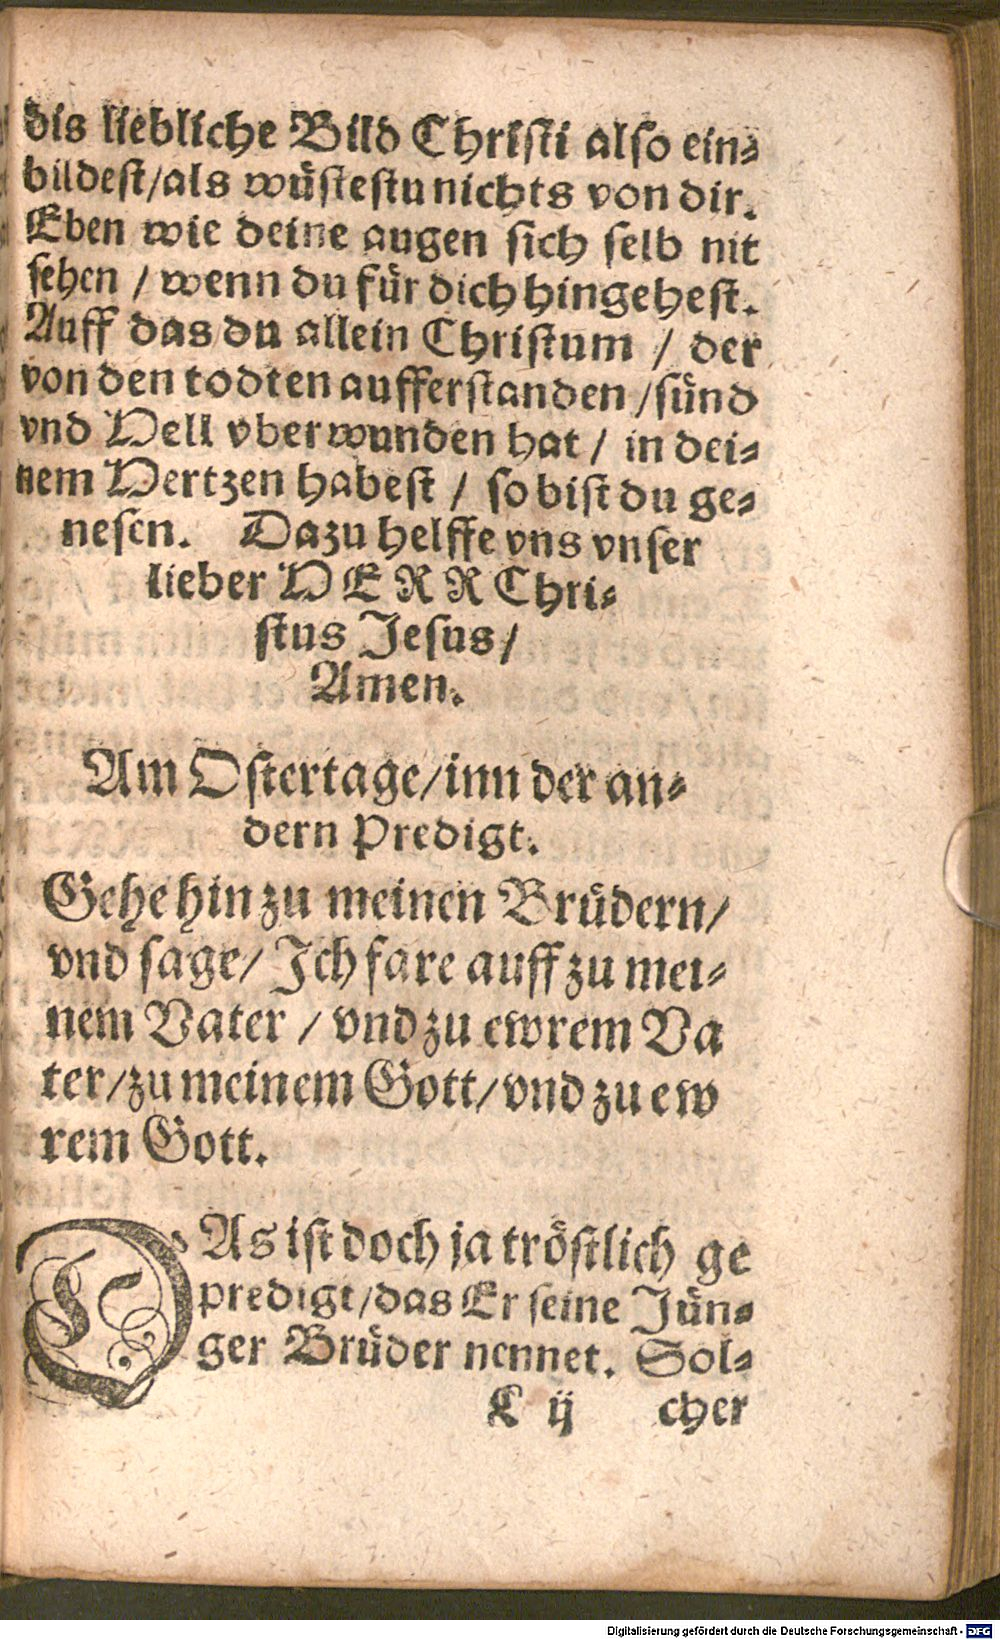 dis liebliche Bild Christi also ein⸗
bildest/als wüstestu nichts von dir.
Eben wie deine augen sich selb nit
sehen / wenn du für dich hingehest.
Auff das du allein Christum / der
von den todten aufferstanden /sünd
vnd Hell vberwunden hat / in dei⸗
nem Hertzen habest / so bist du ge⸗
nesen. Dazu helffe vns vnser
lieber HERR Chri⸗
stus Jesus/
Amen.
Am Ostertage/inn der an⸗
dern Predigt.
Gehe hin zu meinen Brüdern/
vnd sage/ Ich fare auff zu mei⸗
nem Vater / vnd zu ewrem Va
ter/zu meinem Gott/vnd zu ew
rem Gott.
DAs ist doch ja tröstlich ge
predigt/das Er seine Jün⸗
ger Brüder nennet. Sol⸗
L ij cher
Digitalisierung gefördert durch die Deutsche Forschungsgemeinschaft - DFG